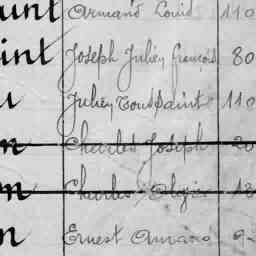 aint Armand Louis 110
aint Joseph Julien François 80
u Julien Toussaint 110
n Charles Joseph 20
n Charles
n Ernest Amand